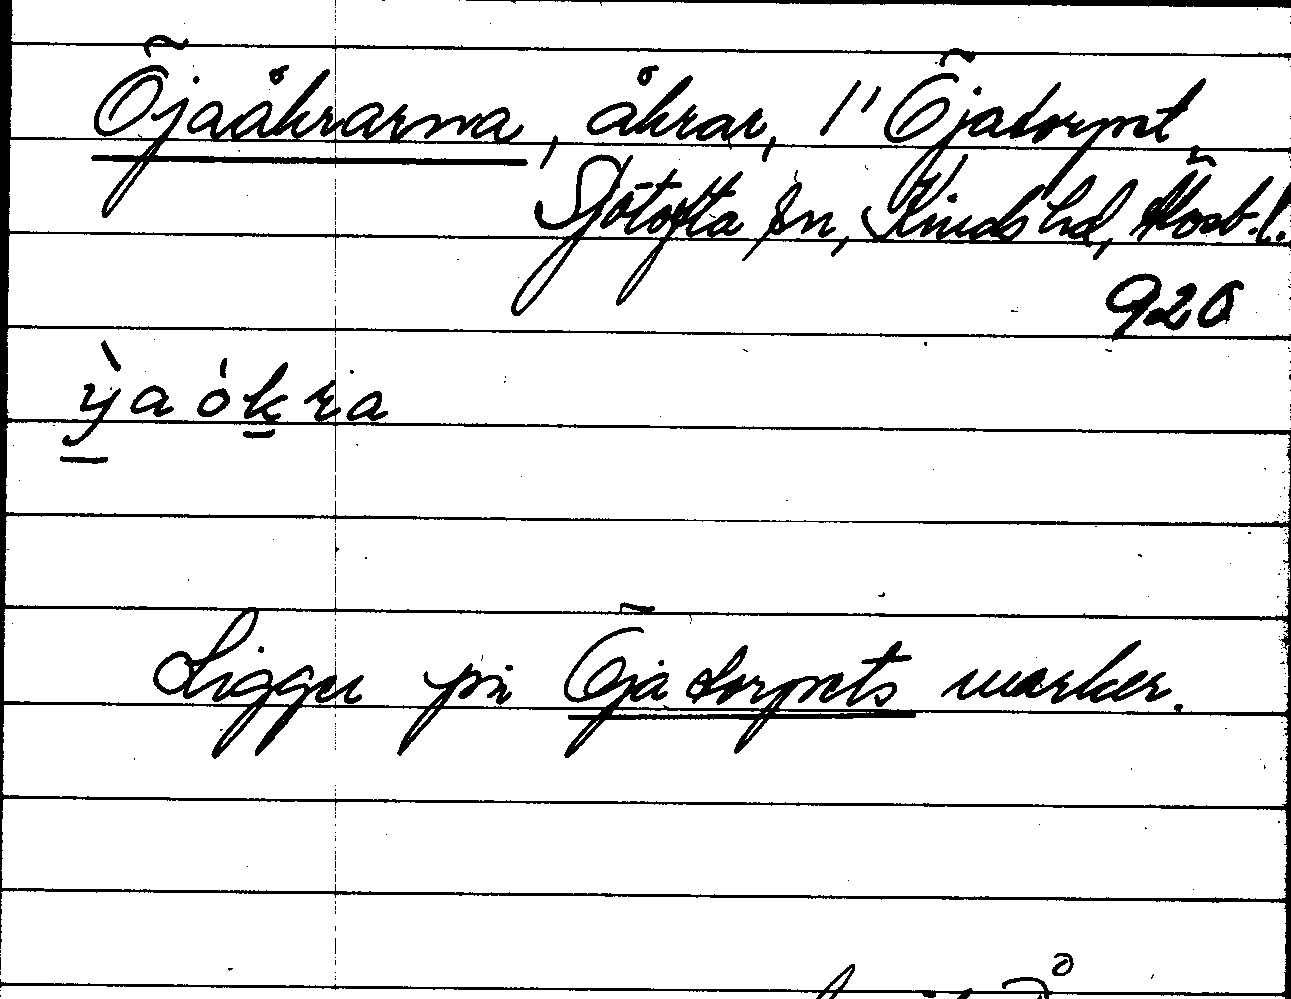 Öjaåkrarna, åkrar, 1" Öjatorpet
Sjötofta sn, Kinds hd, Älvsb. l.
920
ỳa ókra
Ligger på Öjatorpets marker.